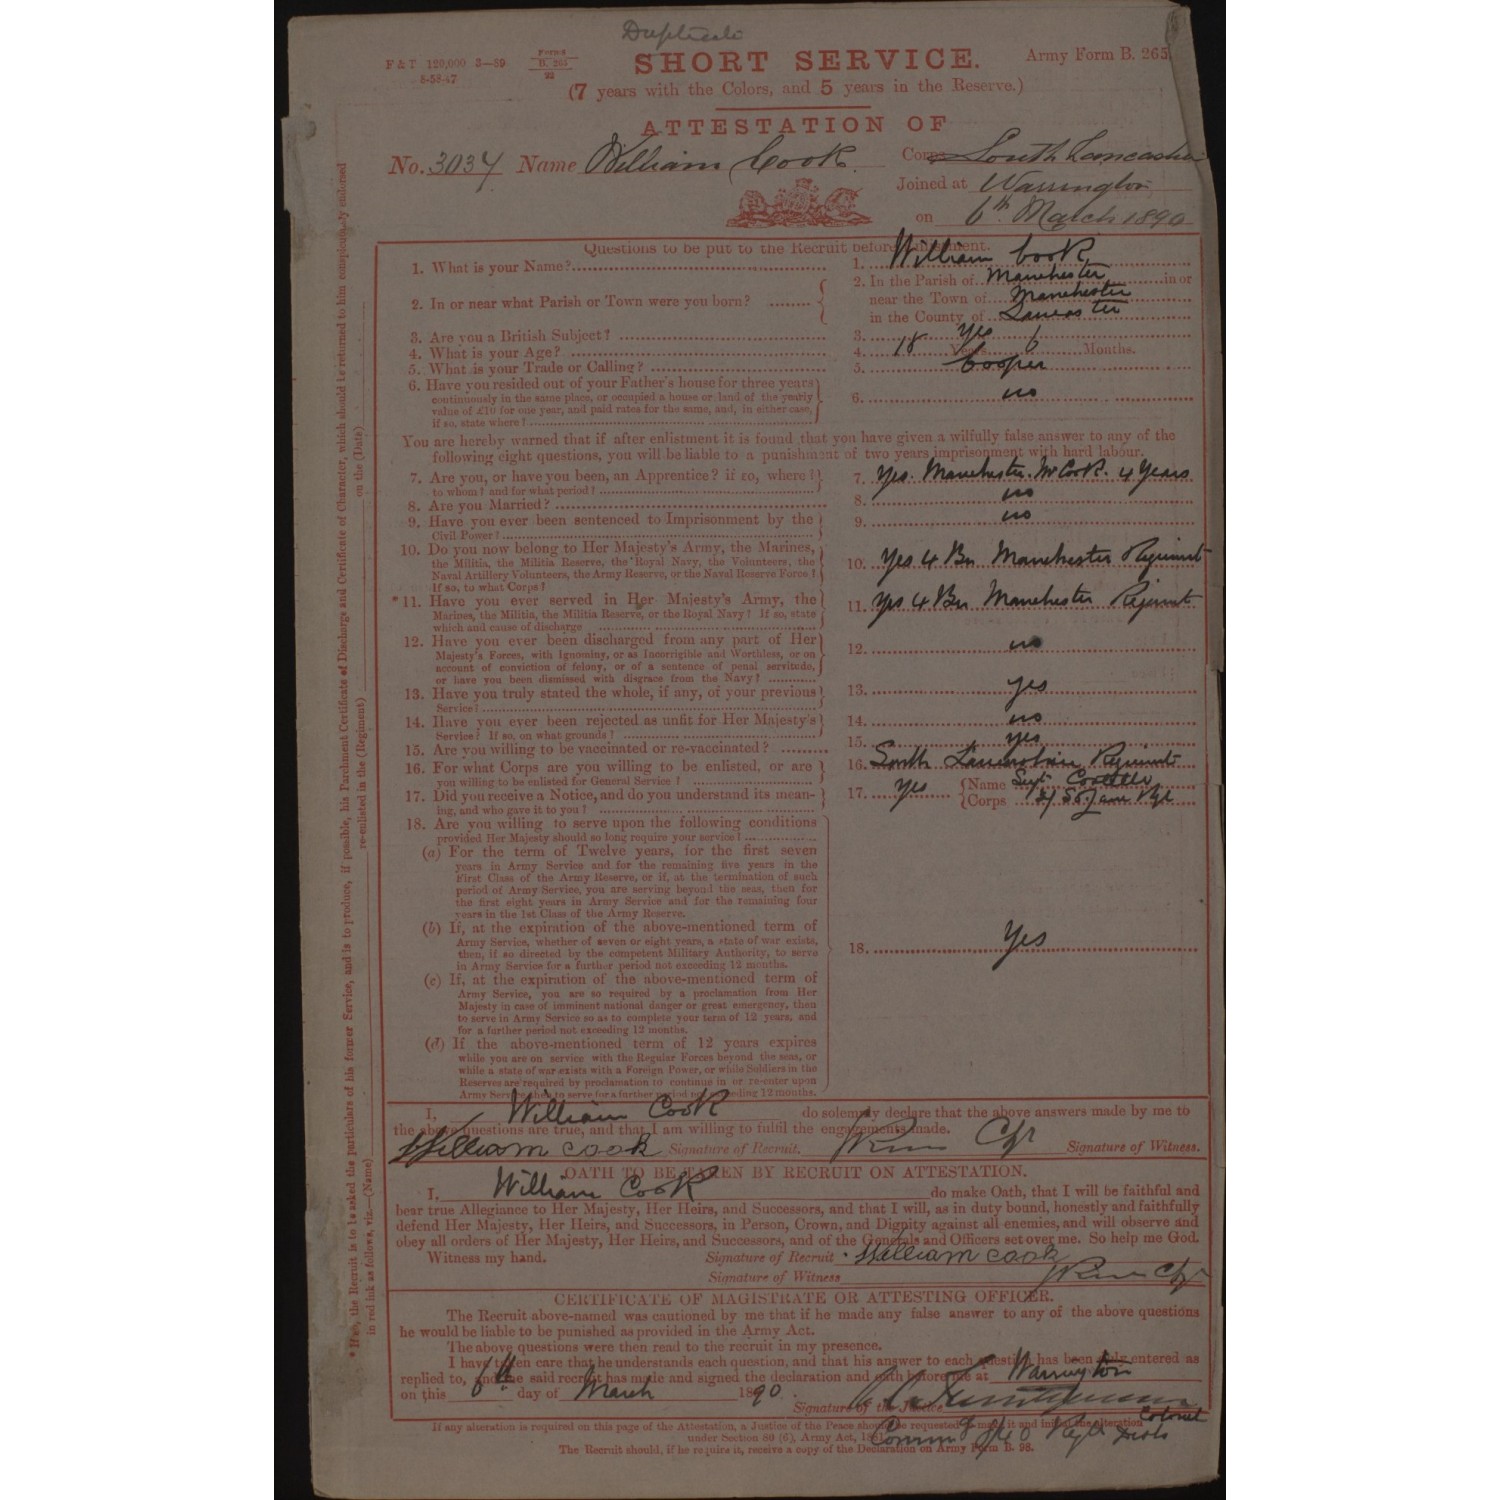 Duplicate
F & T 120,000 3—89
8-58-47
Forms
B. 265
22
SHORT SERVICE.
Army Form B. 265
(7 years with the Colors, and 5 years in the Reserve.)
ATTESTATION OF
No. 3034 Name William Cook
Corps South Lancashire
Joined at Warrington
on 6th March 1890
Questions to be put to the Recruit before enlistment.
1. What is your Name? 1. William Cook
2. In or near what Parish or Town were you born? 2. In the Parish of Manchester in or
near the Town of Manchester
in the County of Lancaster
3. Are you a British Subject? 3. Yes
4. What is your Age? 4. 18 Years 6 Months.
5. What is your Trade or Calling? 5. Cooper
6. Have you resided out of your Father's house for three years
continuously in the same place, or occupied a house or land of the yearly
value of £10 for one year, and paid rates for the same, and, in either case,
if so, state where? 6. no
You are hereby warned that if after enlistment it is found that you have given a wilfully false answer to any of the
following eight questions, you will be liable to a punishment of two years imprisonment with hard labour.
7. Are you, or have you been, an Apprentice? if so, where?
to whom? and for what period? 7. Yes. Manchester. Mr Cook. 4 Years
8. Are you Married? 8. no
9. Have you ever been sentenced to Imprisonment by the
Civil Power? 9. no
10. Do you now belong to Her Majesty's Army, the Marines,
the Militia, the Militia Reserve, the Royal Navy, the Volunteers, the
Naval Artillery Volunteers, the Army Reserve, or the Naval Reserve Force?
If so, to what Corps? 10. Yes 4 Bn Manchester Regiment
* 11. Have you ever served in Her Majesty's Army, the
Marines, the Militia, the Militia Reserve, or the Royal Navy? If so, state
which and cause of discharge 11. Yes 4 Bn Manchester Regiment
12. Have you ever been discharged from any part of Her
Majesty's Forces, with Ignominy, or as Incorrigible and Worthless, or on
account of conviction of felony, or of a sentence of penal servitude,
or have you been dismissed with disgrace from the Navy? 12. no
13. Have you truly stated the whole, if any, of your previous
Service? 13. yes
14. Have you ever been rejected as unfit for Her Majesty's
Service? If so, on what grounds? 14. no
15. Are you willing to be vaccinated or re-vaccinated? 15. yes
16. For what Corps are you willing to be enlisted, or are
you willing to be enlisted for General Service? 16. South Lancashire Regiment
17. Did you receive a Notice, and do you understand its mean-
ing, and who gave it to you? 17. Yes Name Sergt
Corps
18. Are you willing to serve upon the following conditions
provided Her Majesty should so long require your service?
(a) For the term of Twelve years, for the first seven
years in Army Service and for the remaining five years in the
First Class of the Army Reserve, or if, at the termination of such
period of Army Service, you are serving beyond the seas, then for
the first eight years in Army Service and for the remaining four
years in the 1st Class of the Army Reserve.
(b) If, at the expiration of the above-mentioned term of
Army Service, whether of seven or eight years, a state of war exists,
then, if so directed by the competent Military Authority, to serve
in Army Service for a further period not exceeding 12 months.
18. Yes
(c) If, at the expiration of the above-mentioned term of
Army Service, you are so required by a proclamation from Her
Majesty in case of imminent national danger or great emergency, then
to serve in Army Service so as to complete your term of 12 years, and
for a further period not exceeding 12 months.
(d) If the above-mentioned term of 12 years expires
while you are on service with the Regular Forces beyond the seas, or
while a state of war exists with a Foreign Power, or while Soldiers in the
Reserves are required by proclamation to continue in or re-enter upon
Army Service, then to serve for a further period not exceeding 12 months.
I, William Cook do solemnly declare that the above answers made by me to
the above questions are true, and that I am willing to fulfil the engagements made.
William Cook Signature of Recruit. Signature of Witness.
OATH TO BE TAKEN BY RECRUIT ON ATTESTATION.
I, William Cook do make Oath, that I will be faithful and
bear true Allegiance to Her Majesty, Her Heirs, and Successors, and that I will, as in duty bound, honestly and faithfully
defend Her Majesty, Her Heirs, and Successors, in Person, Crown, and Dignity against all enemies, and will observe and
obey all orders of Her Majesty, Her Heirs, and Successors, and of the Generals and Officers set over me. So help me God.
Witness my hand. Signature of Recruit William Cook
Signature of Witness
CERTIFICATE OF MAGISTRATE OR ATTESTING OFFICER.
The Recruit above-named was cautioned by me that if he made any false answer to any of the above questions
he would be liable to be punished as provided in the Army Act.
The above questions were then read to the recruit in my presence.
I have taken care that he understands each question, and that his answer to each question has been duly entered as
replied to, and the said recruit has made and signed the declaration and oath before me at Warrington
on this 6th day of March 1890.
Signature of the Justice
Colonel
If any alteration is required on this page of the Attestation, a Justice of the Peace should be requested to make it and initial the alteration
under Section 80 (6), Army Act, 1881.
The Recruit should, if he require it, receive a copy of the Declaration on Army Form B. 98.
* If so, the Recruit is to be asked the particulars of his former Service, and is to produce, if possible, his Parchment Certificate of Discharge and Certificate of Character, which should be returned to him conspicuously endorsed
in red ink as follows, viz.—(Name) re-enlisted in the (Regiment) on the (Date)